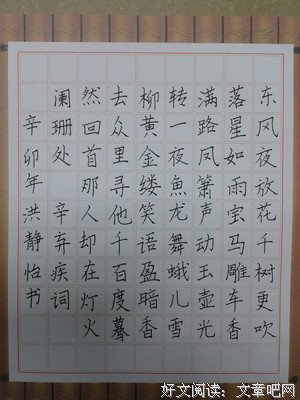 东风夜放花千树更吹
落星如雨宝马雕车香
满路凤箫声动玉壶光
转一夜魚龙舞蛾儿雪
柳黄金缕笑语盈暗香
去众里寻他千百度蓦
然回首那人却在灯火
阑珊处 辛弃疾词
辛卯年洪静怡书
好文阅读：文章吧网